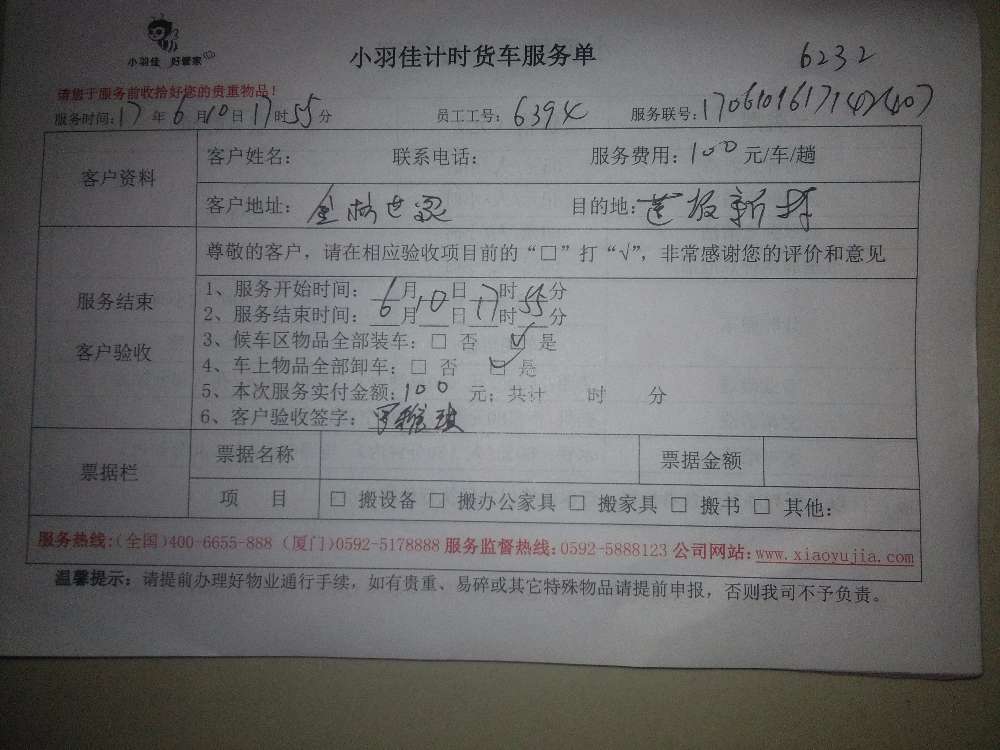 小羽佳 好管家
小羽佳计时货车服务单 6232
请您于服务前收拾好您的贵重物品！
服务时间：17年6月10日17时55分 员工工号：6394 服务联号：
客户资料
客户姓名： 联系电话： 服务费用：100元/车/趟
客户地址： 目的地：
服务结束
客户验收
尊敬的客户，请在相应验收项目前的“□”打“√”，非常感谢您的评价和意见
1、服务开始时间： 6月10日17时55分
2、服务结束时间：__月__日__时__分
3、候车区物品全部装车：□ 否 ☑ 是
4、车上物品全部卸车：□ 否 ☑ 是
5、本次服务实付金额：100 元；共计 时 分
6、客户验收签字：
票据栏
票据名称 票据金额
项 目 □ 搬设备 □ 搬办公家具 □ 搬家具 □ 搬书 □ 其他：
服务热线：(全国)400-6655-888 (厦门)0592-5178888 服务监督热线：0592-5888123 公司网站：www.xiaoyujia.com
温馨提示：请提前办理好物业通行手续，如有贵重、易碎或其它特殊物品请提前申报，否则我司不予负责。